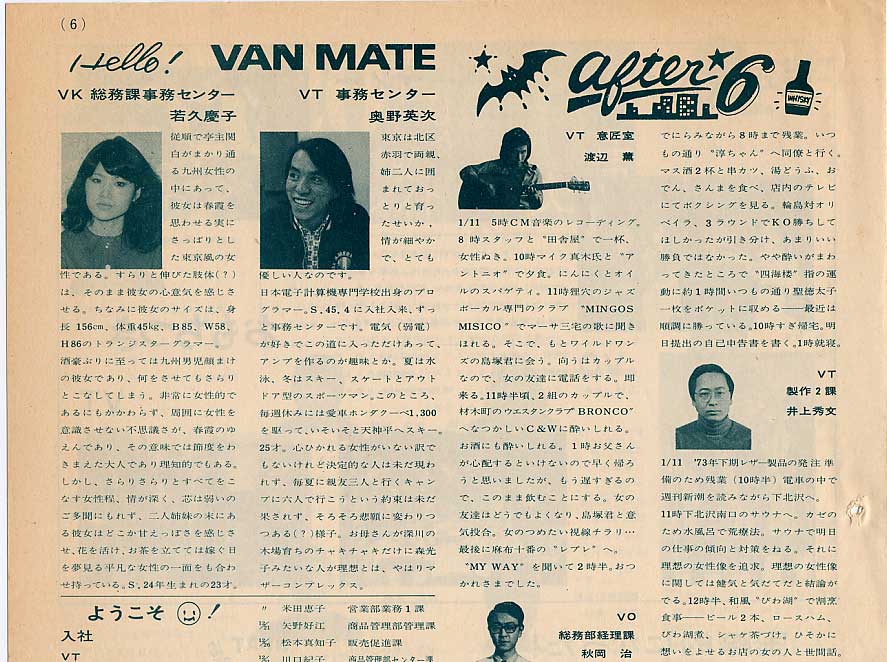 (6)
Hello! VAN MATE
VK 総務課事務センター
若久慶子
従順で亭主関
白がまかり通
る九州女性の
中にあって、
彼女は春霞を
思わせる実に
さっぱりとし
た東京風の女
性である。すらりと伸びた肢体(?)
は、そのまま彼女の心意気を感じさ
せる。ちなみに彼女のサイズは、身
長156cm、体重45kg、B85、W58、
H86のトランジスターグラマー。
酒豪ぶりに至っては九州男児顔まけ
の彼女であり、何をさせてもさらり
とこなしてしまう。非常に女性的で
あるにもかかわらず、周囲に女性を
意識させない不思議さが、春霞のゆ
えんであり、その意味では節度をわ
きまえた大人であり理知的でもある。
しかし、さらりさらりとすべてをこ
なす女性程、情が深く、芯は弱いの
ご多聞にもれず、二人姉妹の末にあ
る彼女はどこか甘えっぽさを感じさ
せ、花を活け、お茶を立てては嫁ぐ日
を夢見る平凡な女性の一面をも合わ
せ持っている。S、24年生まれの23才。
VT 事務センター
奥野英次
東京は北区
赤羽で両親、
姉二人に囲
まれておっ
とりと育っ
たせいか、
情が細やか
で、とても
優しい人なのです。
日本電子計算機専門学校出身のプロ
グラマー。S、45、4に入社入来、ずっ
と事務センターです。電気(弱電)
が好きでこの道に入っただけあって、
アンプを作るのが趣味とか。夏は水
泳、冬はスキー、スケートとアウト
ドア型のスポーツマン。このところ、
毎週休みには愛車ホンダクーペ1,300
を駆って、いそいそと天神平へスキー。
25才。心ひかれる女性がいない訳で
もないけれど決定的な人は未だ現わ
れず、毎夏に親友三人と行くキャン
プに六人で行こうという約束は未だ
果されず、そろそろ悲願に変わりつ
つある(?)様子。お母さんが深川の
木場育ちのチャキチャキだけに森光
子みたいな人が理想とは、やはりマ
ザーコンプレックス。
ようこそ !
入社
VT
〃 米田恵子 営業部業務1課
矢野好江 商品管理部管理課
松本真知子 販売促進課
川口紀子 商品管理部センター課
after 6
WHISKY
VT 意匠室
渡辺 薫
1/11 5時CM音楽のレコーディング。
8時スタッフと"田舎屋"で一杯、
女性ぬき。10時マイク真木氏と"ア
ントニオ"で夕食。にんにくとオイ
ルのスパゲティ。11時狸穴のジャズ
ボーカル専門のクラブ"MINGOS
MISICO"でマーサ三宅の歌に聞き
ほれる。そこで、もとワイルドワン
ズの島塚君に会う。向うはカップル
なので、女の友達に電話をする。即
来る。11時半頃、2組のカップルで、
材木町のウエスタンクラブBRONCO"
へなつかしいC&Wに酔いしれる。
お酒にも酔いしれる。1時お父さん
が心配するといけないので早く帰ろ
うと思いましたが、もう遅すぎるの
で、このまま飲むことにする。女の
友達はどうでもよくなり、島塚君と意
気投合。女のつめたい視線チラリ…
最後に麻布十番の"レプレ"へ。
"MY WAY"を聞いて2時半。おつ
かれさまでした。
VO
総務部経理課
秋岡 治
でにらみながら8時まで残業。いつ
もの通り"淳ちゃん"へ同僚と行く。
マス酒2杯と串カツ、湯どうふ、お
でん、さんまを食べ、店内のテレビ
にてボクシングを見る。輪島対オリ
ベイラ、3ラウンドでKO勝ちして
ほしかったが引き分け、あまりいい
勝負ではなかった。やや酔いがまわ
ってきたところで"四海楼"指の運
動に約1時間いつもの通り聖徳太子
一枚をポケットに収める——最近は
順調に勝っている。10時すぎ帰宅。明
日提出の自己申告書を書く。1時就寝。
VT
製作2課
井上秀文
1/11 '73年下期レザー製品の発注準
備のため残業(10時半)電車の中で
週刊新潮を読みながら下北沢へ。
11時下北沢南口のサウナへ。カゼの
ため水風呂で荒療法。サウナで明日
の仕事の傾向と対策をねる。それに
理想の女性像を追求。理想の女性像
に関しては健気と気だてだと結論が
でる。12時半、和風"びわ湖"で割烹
食事——ビール2本、ロースハム、
びわ湖煮、シャケ茶づけ。ひそかに
想いをよせるお店の女の人と世間話。